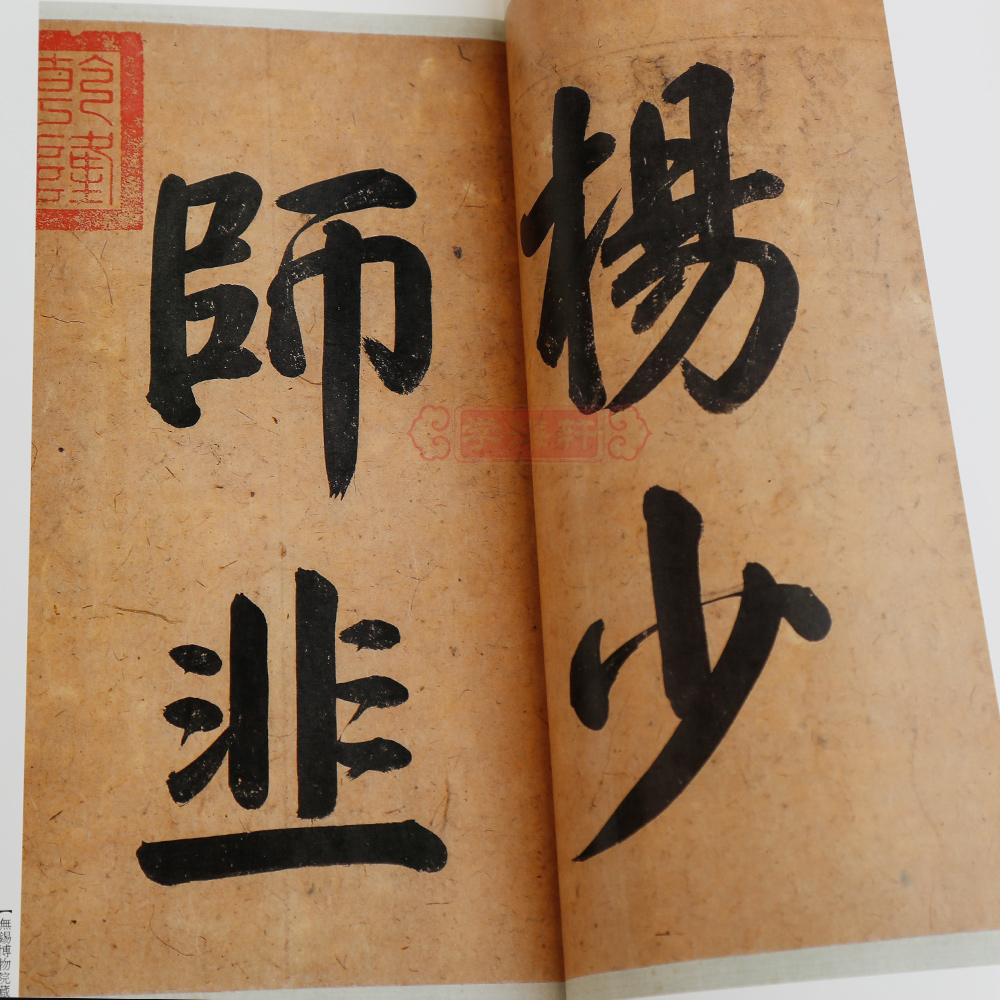 楊少
師韭
無錫博物院藏